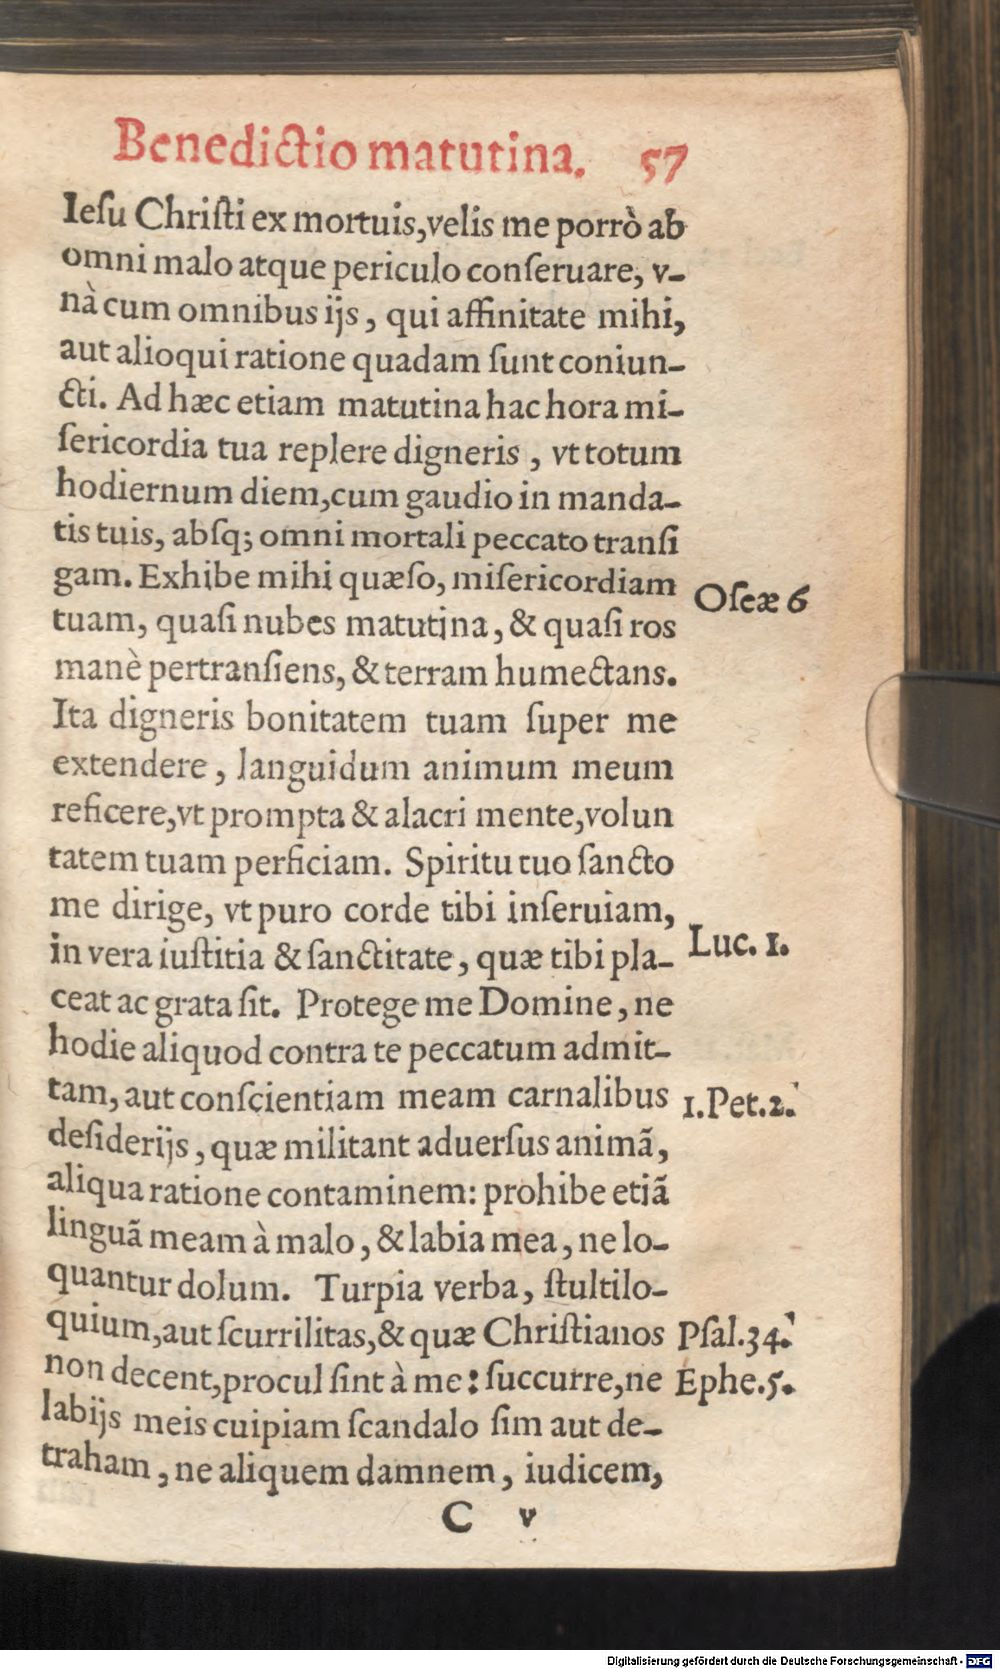 Benedictio matutina. 57
Iesu Christi ex mortuis, velis me porrò ab
omni malo atque periculo conſeruare, v-
nà cum omnibus ijs, qui affinitate mihi,
aut alioqui ratione quadam ſunt coniun-
cti. Ad hæc etiam matutina hac hora mi-
ſericordia tua replere digneris, vt totum
hodiernum diem, cum gaudio in manda-
tis tuis, abſq; omni mortali peccato tranſi
gam. Exhibe mihi quæſo, miſericordiam
Oſeæ 6
tuam, quaſi nubes matutina, & quaſi ros
manè pertranſiens, & terram humectans.
Ita digneris bonitatem tuam ſuper me
extendere, languidum animum meum
reficere, vt prompta & alacri mente, volun
tatem tuam perficiam. Spiritu tuo ſancto
me dirige, vt puro corde tibi inſeruiam,
in vera iuſtitia & ſanctitate, quæ tibi pla-
Luc. 1.
ceat ac grata ſit. Protege me Domine, ne
hodie aliquod contra te peccatum admit-
tam, aut conſcientiam meam carnalibus
1.Pet.2.
deſiderijs, quæ militant aduerſus animã,
aliqua ratione contaminem: prohibe etiã
linguã meam à malo, & labia mea, ne lo-
quantur dolum. Turpia verba, ſtultilo-
quium, aut ſcurrilitas, & quæ Chriſtianos
Pſal.34.
non decent, procul ſint à me: ſuccurre, ne
Ephe.5.
labijs meis cuipiam ſcandalo ſim aut de-
traham, ne aliquem damnem, iudicem,
C v
Digitalisierung gefördert durch die Deutsche Forschungsgemeinschaft - DFG